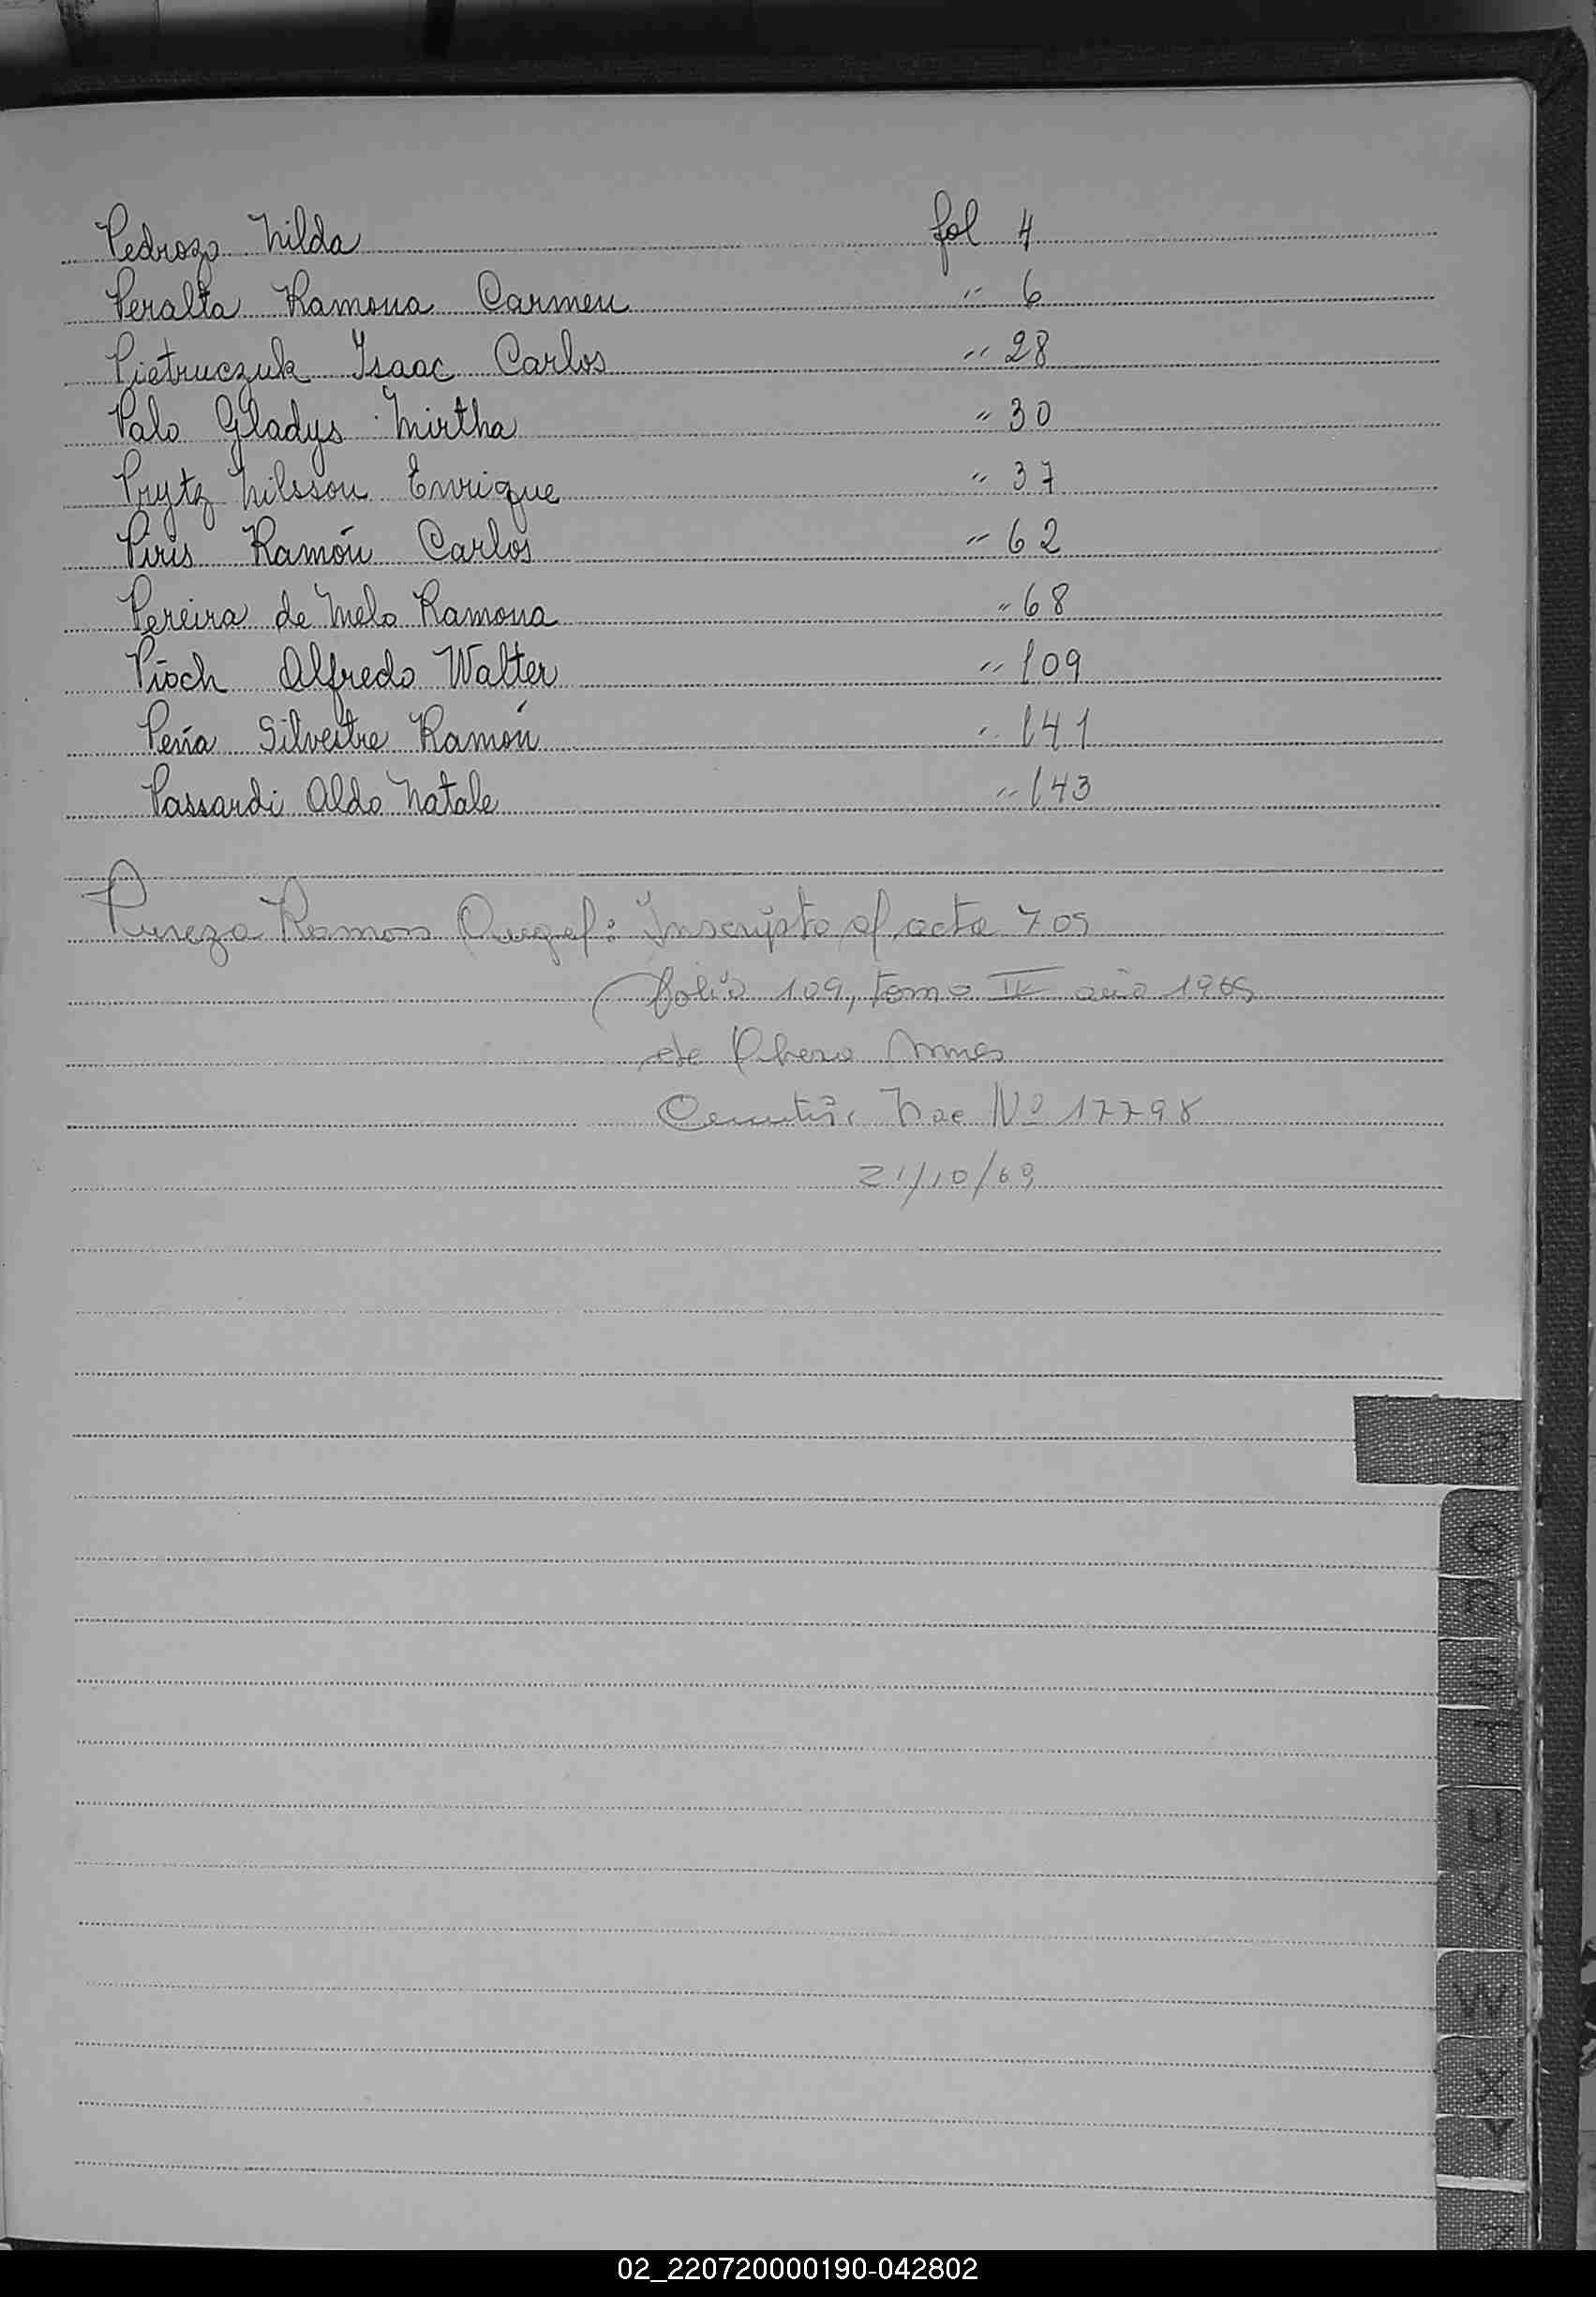 Pedrozo Nilda fol 4
Peralta Ramona Carmen " 6
Pietruczuk Isaac Carlos " 28
Palo Gladys Mirtha " 30
Prytz Nilsson Enrique " 37
Piris Ramón Carlos " 62
Pereira de Melo Ramona " 68
Pioch Alfredo Walter " 109
Peña Silvestre Ramón " 141
Passardi Aldo Natale " 143
Pureza Ramon Angel: Inscripto al acta 705
folio 109, tomo II año 1965
de
Nac Nº 17798
21/10/69
P
Q
R
S
T
U
V
W
X
Y
Z
02_220720000190-042802